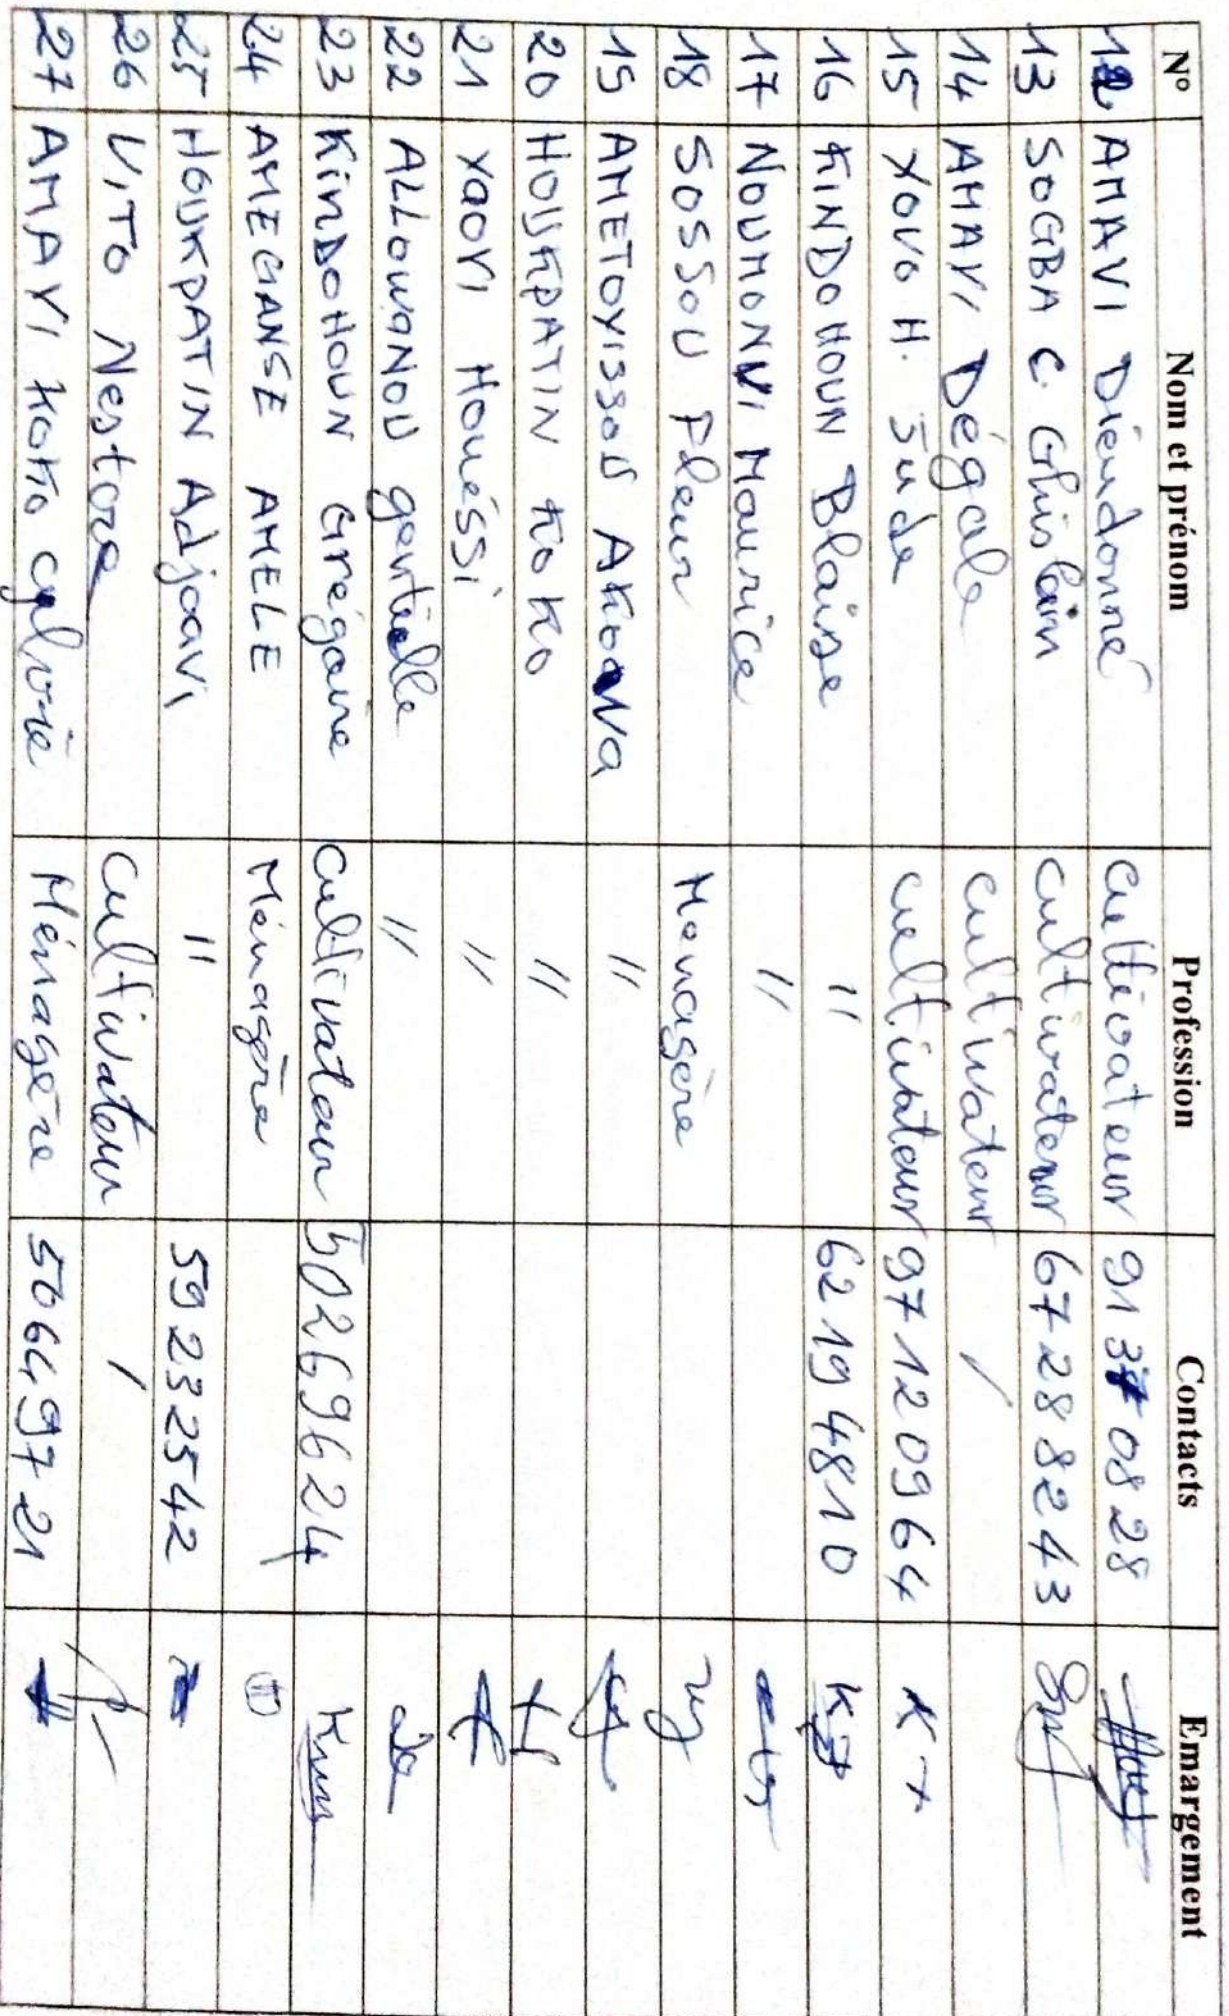 N° Nom et prénom Profession Contacts Emargement
12 AMAVI Dieudonné Cultivateur 91370828
13 SOGBA C. Ghislain Cultivateur 67288243
14 AMAVI Dégole Cultivateur /
15 YOVO H. Jude Cultivateur 97120964
16 KINDOHOUN Blaise " 62194810
17 NOUMONVI Maurice "
18 SOSSOU Fleur Menagère
19 AMETOYISSOU Akouava "
20 HOUKPATIN KOKO "
21 YAOVI Houéssi "
22 ALLOWANOU gentielle "
23 KinDOHOUN Grégoire Cultivateur 50269624
24 AMEGANSE AMELE Ménagère
25 HOUKPATIN Adjoavi " 59232542
26 VITO Nestore Cultivateur /
27 AMAVI KOKO cylvie Ménagère 50649721